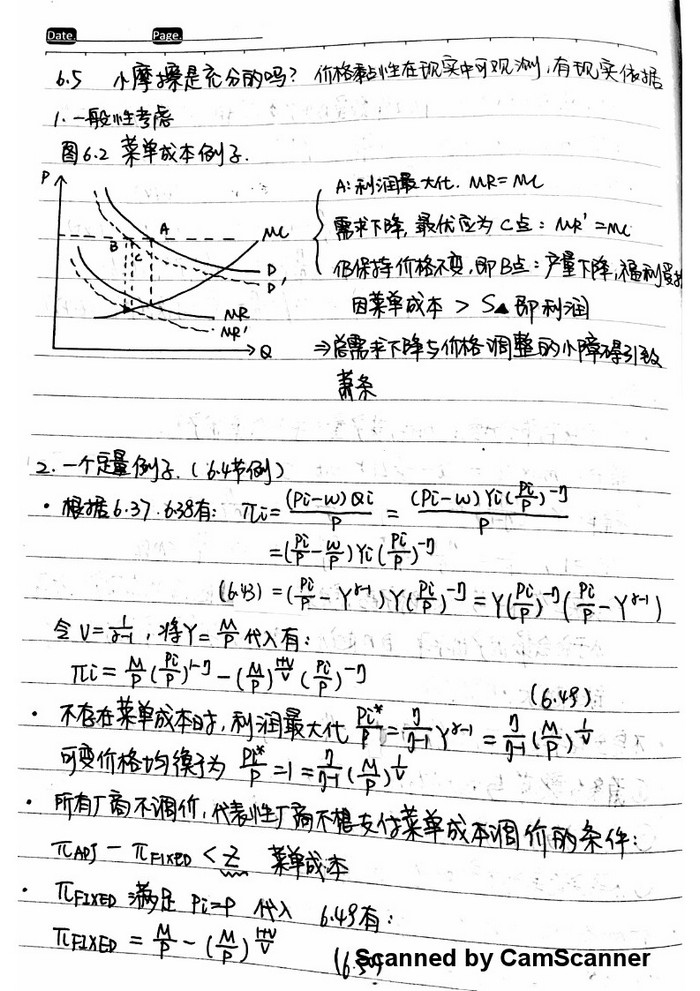 Date. Page.
6.5 小摩擦是充分的吗? 价格黏性在现实中可观测,有现实依据
1. 一般性考虑
图6.2 菜单成本例子.
P
A
B
C
MC
D
D'
MR
MR'
Q
A: 利润最大化. MR=MC
需求下降, 最优应为C点: MR'=MC
仍保持价格不变, 即B点: 产量下降, 福利受损
因菜单成本 > S▲ 即利润
⇒总需求下降与价格调整的小障碍引致
萧条
2. 一个定量例子. (6.4节例)
· 根据6.37. 6.38有: πi = (Pi-W)Qi / P = (Pi-W)Yi(Pi/P)^-η / P
= (Pi/P - W/P) Yi (Pi/P)^-η
(6.43) = (Pi/P - Y^γ-1) Y (Pi/P)^-η = Y(Pi/P)^-η (Pi/P - Y^γ-1)
令 V = 1/γ-1, 将Y = M/P 代入有:
πi = M/P (Pi/P)^1-η - (M/P)^(1+V)/V (Pi/P)^-η
(6.49)
· 不存在菜单成本时, 利润最大化 Pi*/P = η/η-1 Y^γ-1 = η/η-1 (M/P)^1/V
可变价格均衡为 Pi*/P = 1 = η/η-1 (M/P)^1/V
· 所有厂商不调价, 代表性厂商不想支付菜单成本调价的条件:
πADJ - πFIXED < Z 菜单成本
· πFIXED 满足 Pi=P 代入 6.49有:
πFIXED = M/P - (M/P)^(1+V)/V
Scanned by CamScanner